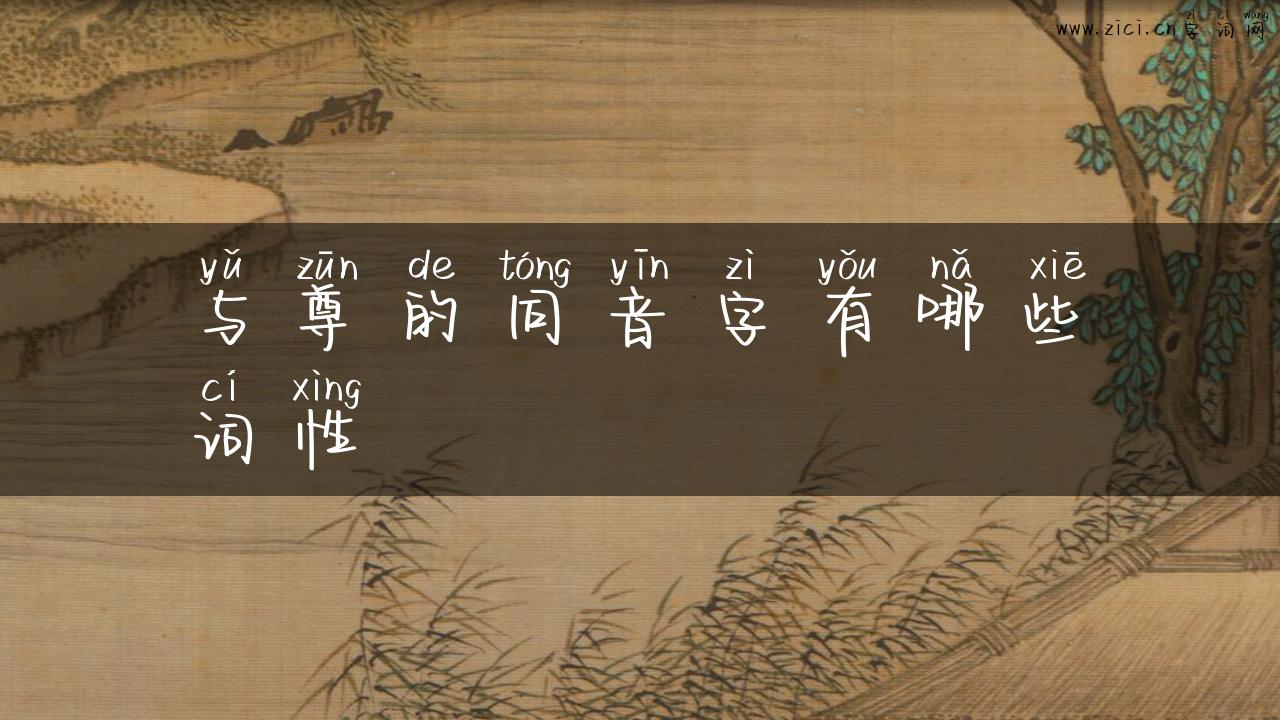 zì cí wǎng
www.zici.cn字词网
yǔ zūn de tóng yīn zì yǒu nǎ xiē
与尊的同音字有哪些
cí xìng
词性